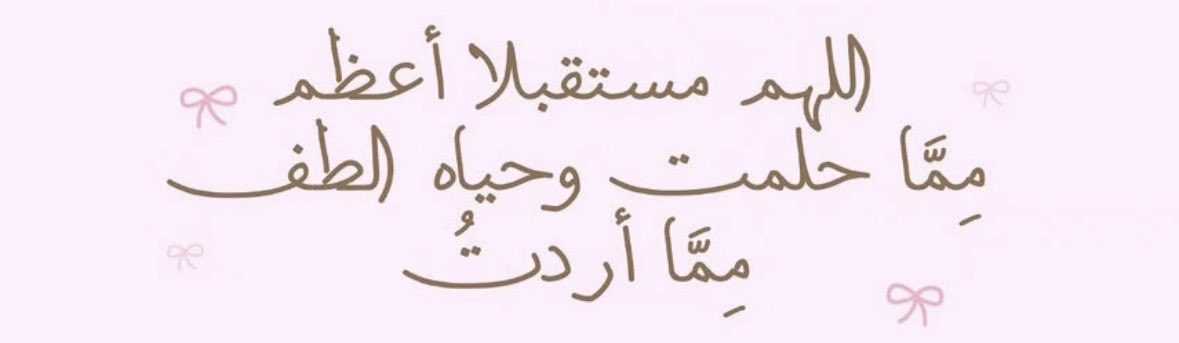 اللهم مستقبلا أعظم
مِمَّا حلمت وحياه الطف
مِمَّا أردتُ